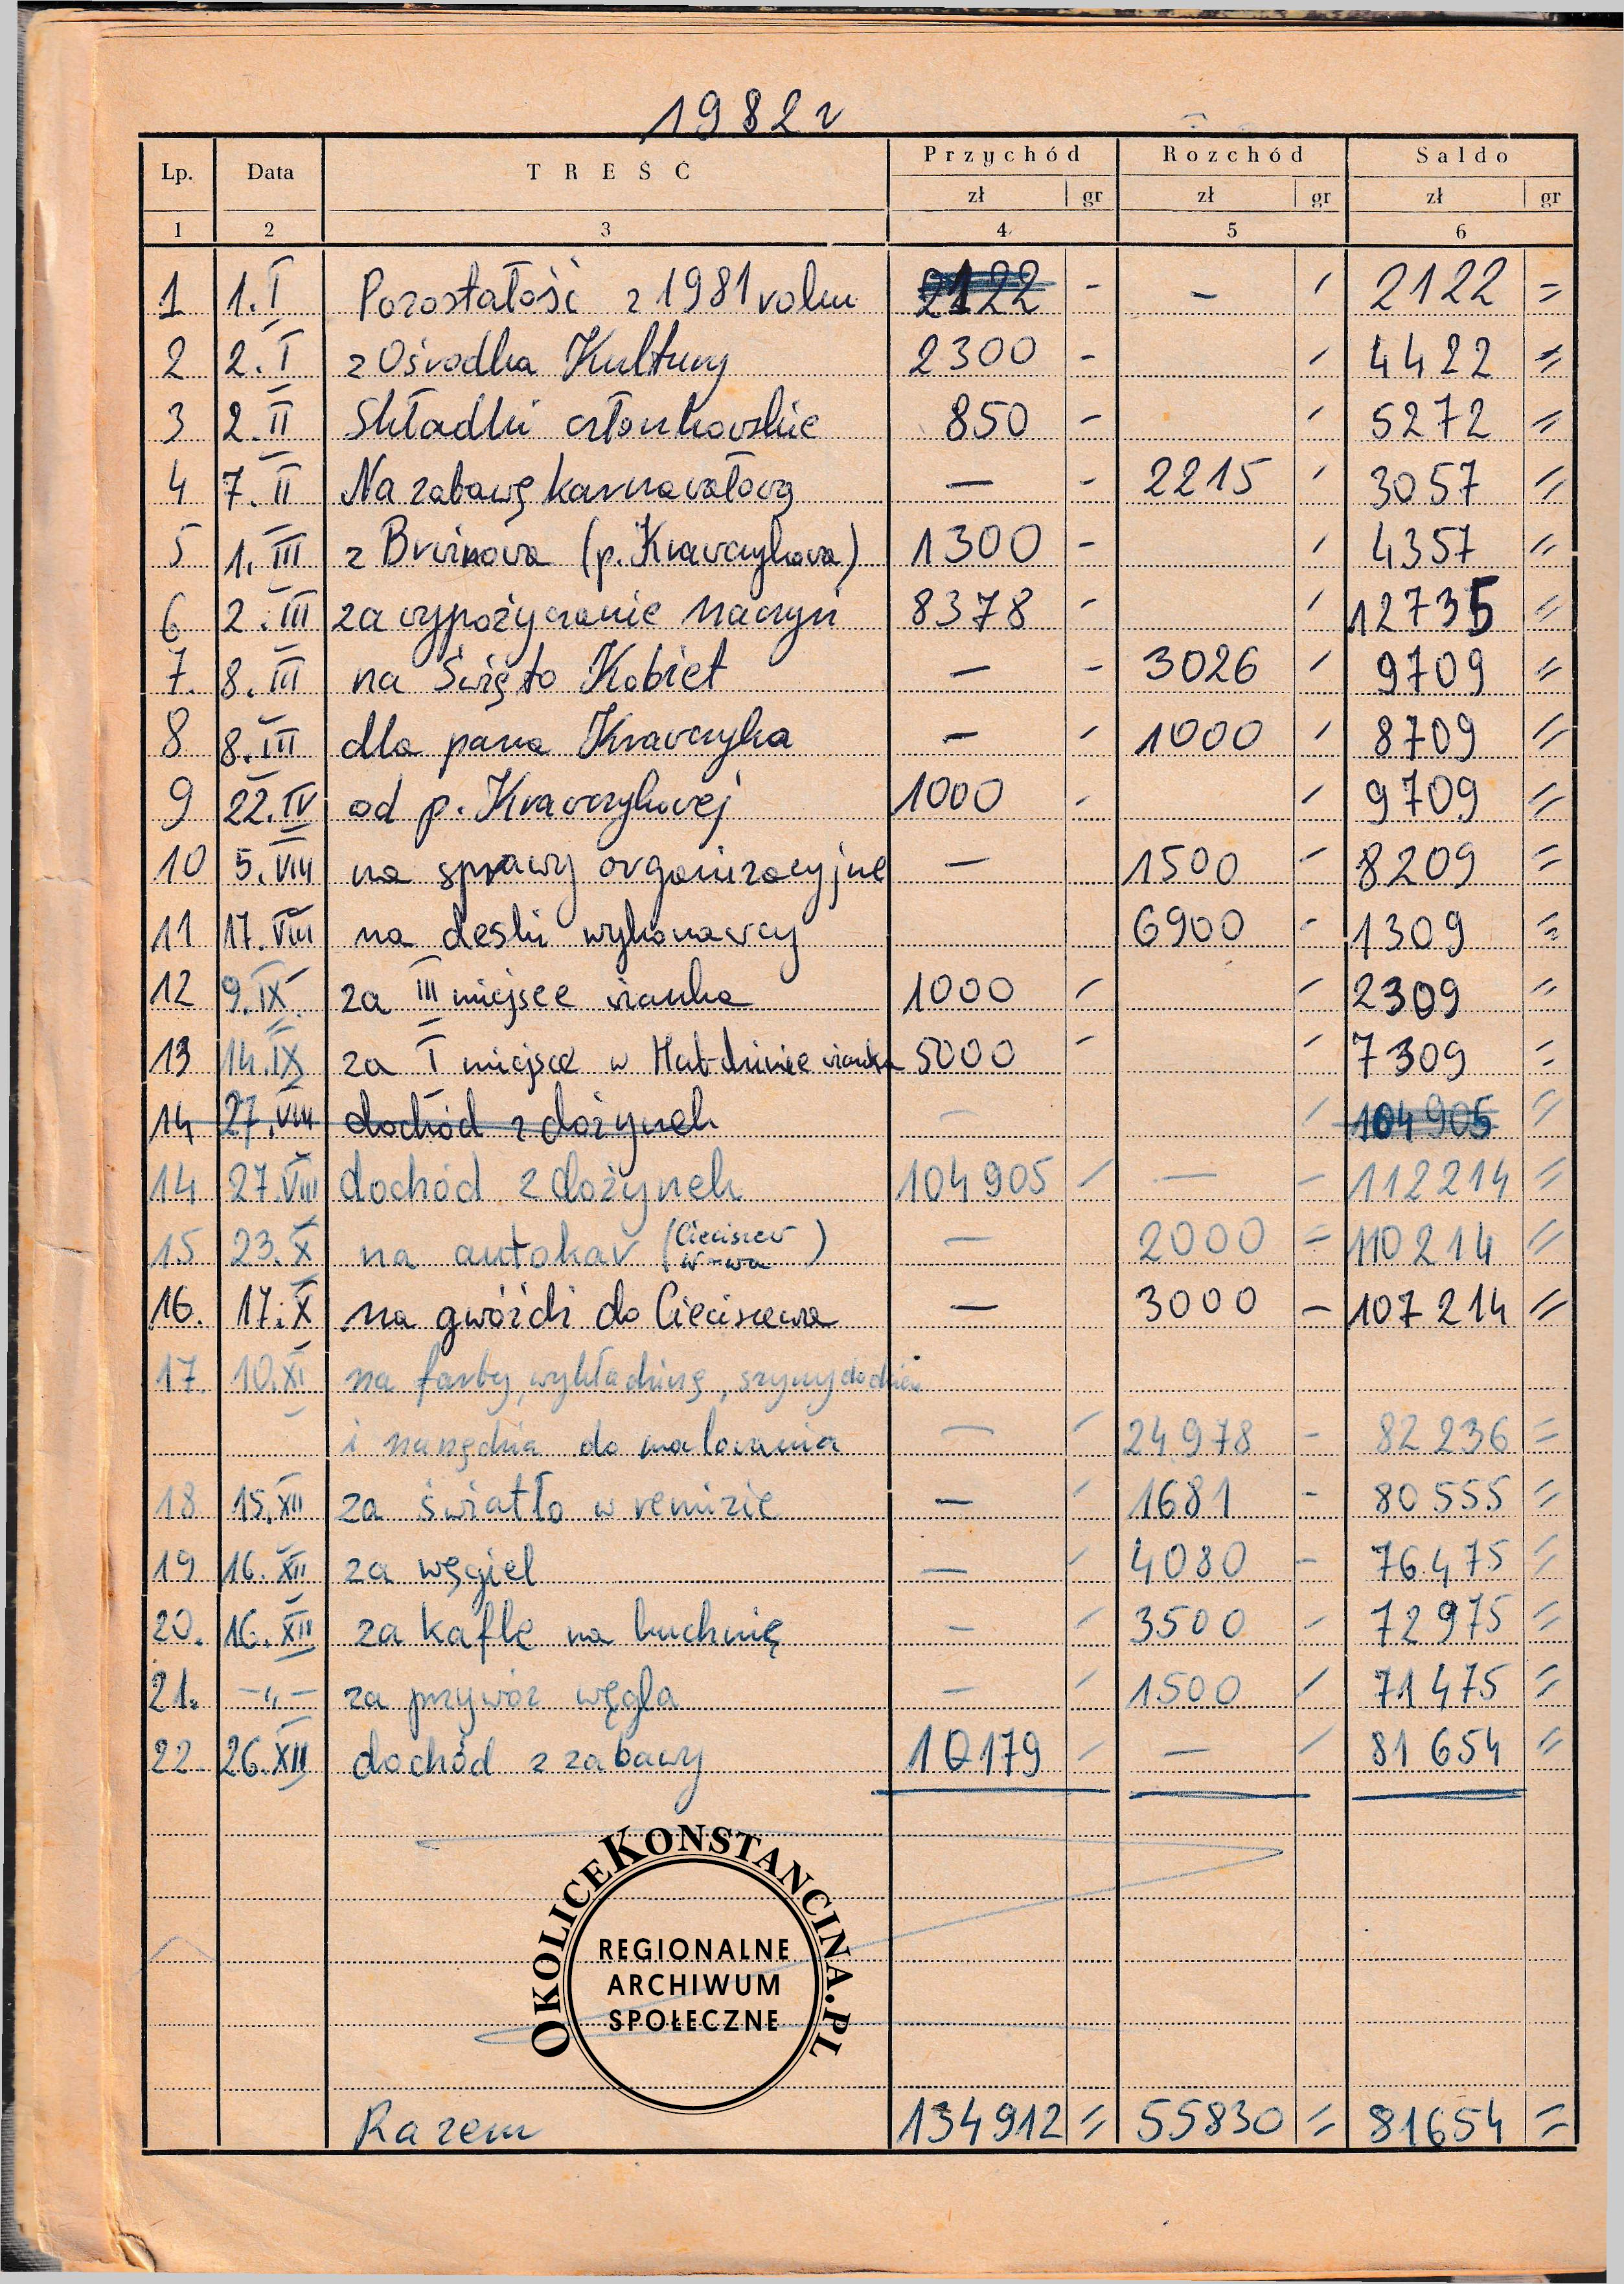 1982 r
Lp. Data TREŚĆ Przychód Rozchód Saldo
zł gr zł gr zł gr
1 2 3 4 5 6
1 1.I Pozostałość z 1981 roku 2122 - - - 2122 =
2 2.I z Ośrodka Kultury 2300 - - 4422 =
3 2.II Składki członkowskie 850 - - 5272 =
4 7.II Na zabawę karnawałową — - 2215 - 3057 =
5 1.III z Brwinowa (p. Krawczykowa) 1300 - - 4357 =
6 2.III za wypożyczanie naczyń 8378 - - 12735 =
7. 8.III na Święto Kobiet — - 3026 - 9709 =
8 8.III dla pana Krawczyka — - 1000 - 8709 =
9 22.IV od p. Krawczykowej 1000 - - 9709 =
10 5.VIII na sprawy organizacyjne — 1500 - 8209 =
11 17.VIII na deski wykonawcy 6900 - 1309 =
12 9.IX za III miejsce wianka 1000 - - 2309 =
13 14.IX za I miejsce w Hat-dzinie wianka 5000 - - 7309 =
14 27.VIII dochód z dożynek — - 104905 =
14 27.VIII dochód z dożynek 104905 - — - 112214 =
15 23.X na autokar (Cieciszew W-wa) — 2000 = 110214 =
16. 17.X na gwóździ do Cieciszewa — 3000 - 107214 =
17. 10.XI na farby, wykładzinę, szyny do drzwi
i narzędzia do malowania — - 24978 - 82236 =
18 15.XII za światło w remizie — - 1681 - 80555 =
19 16.XII za węgiel — - 4080 - 76475 =
20. 16.XII za kafle na kuchnię — - 3500 - 72975 =
21. -„- za przywóz węgla — - 1500 - 71475 =
22. 26.XII dochód z zabawy 10179 - — - 81654 =
OKOLICEKONSTANCINA.PL
REGIONALNE
ARCHIWUM
SPOŁECZNE
Razem 134912 = 55830 = 81654 =